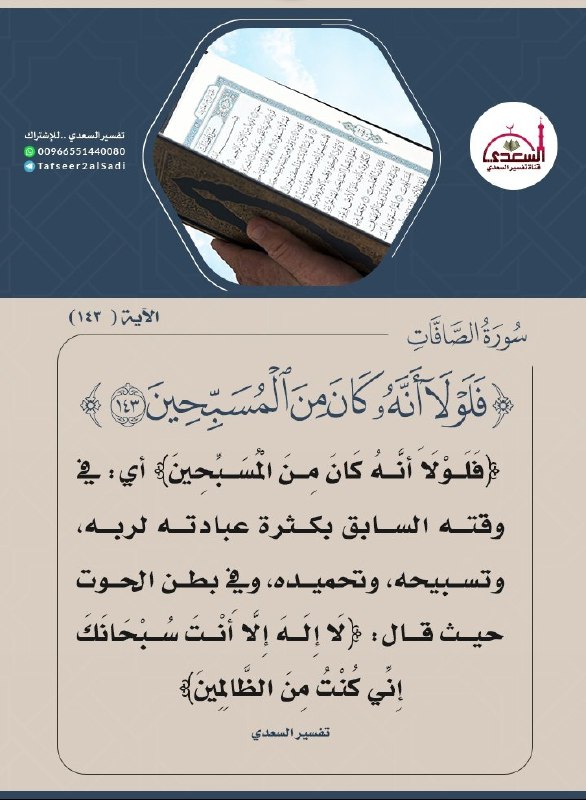 تفسير السعدي .. للإشتراك
00966551440080
Tafseer2alSadi
السعدي
قناة تفسير السعدي
الآية ( ١٤٣)
سُورَةُ الصَّافَّاتِ
﴿ فَلَوْلَآ أَنَّهُۥ كَانَ مِنَ ٱلْمُسَبِّحِينَ ١٤٣ ﴾
﴿فَلَوْلَا أَنَّهُ كَانَ مِنَ الْمُسَبِّحِينَ﴾ أي: في
وقته السابق بكثرة عبادته لربه،
وتسبيحه، وتحميده، وفي بطن الحوت
حيث قال: ﴿لَا إِلَهَ إِلَّا أَنْتَ سُبْحَانَكَ
إِنِّي كُنْتُ مِنَ الظَّالِمِينَ﴾
تفسير السعدي